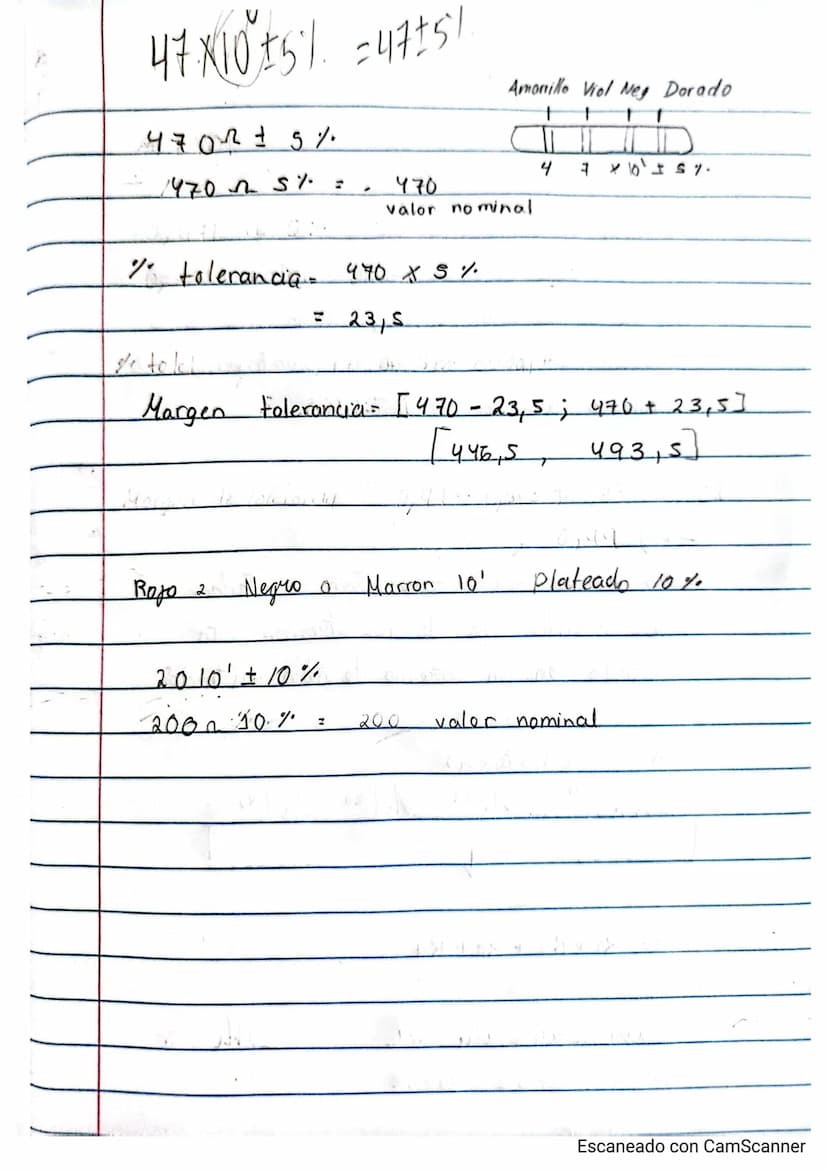 47 x 10⁰ ± 5 %. = 47 ± 5 %
Amarillo Viol Neg Dorado
4 7 x 10¹ ± 5 %.
470 Ω ± 5 %.
470 Ω 5 %. = . 470
valor nominal
% tolerancia = 470 x 5 %.
= 23,5
% tol
Margen tolerancia = [470 - 23,5 ; 470 + 23,5]
[446,5 , 493,5]
Rojo 2 Negro 0 Marron 10¹ Plateado 10 %.
20 10¹ ± 10 %.
200 Ω 10. %. = 200 valor nominal
Escaneado con CamScanner